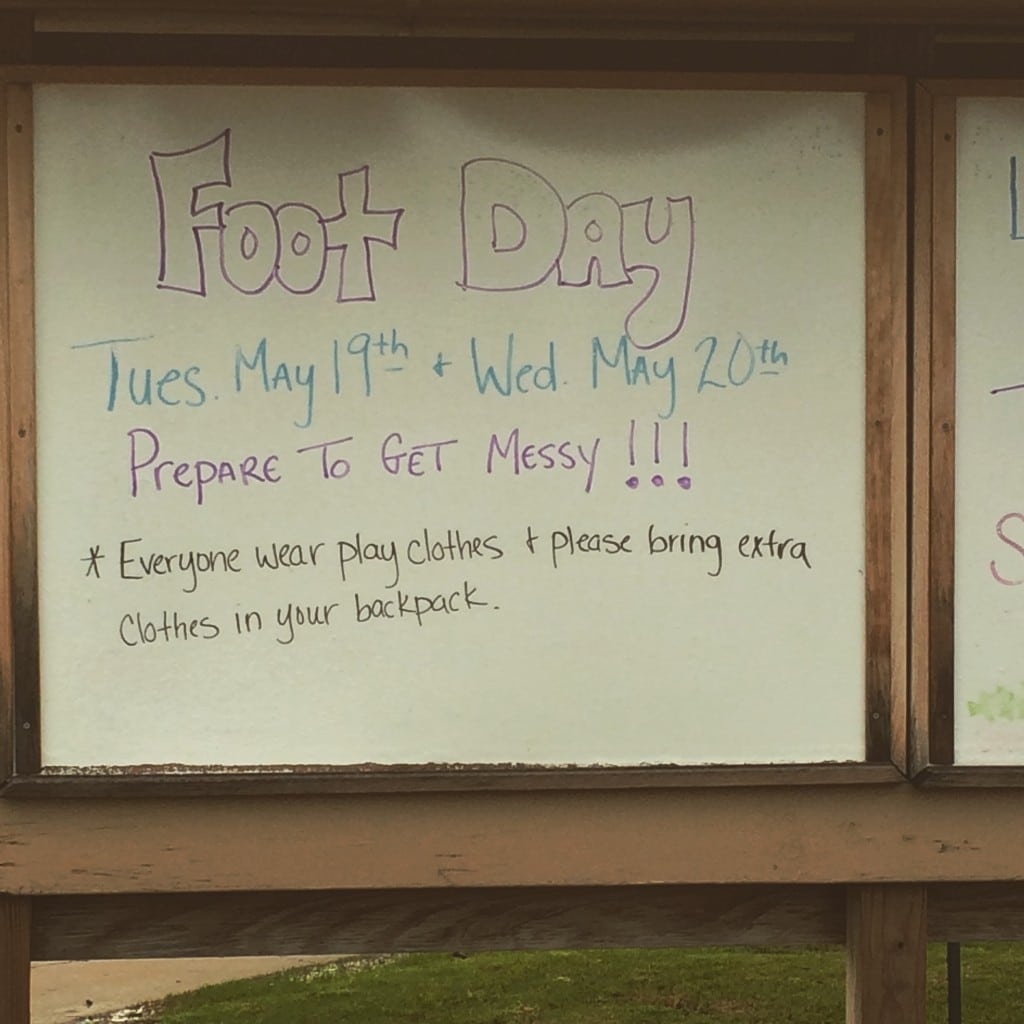 Foot Day
Tues. May 19th + Wed. May 20th
Prepare To Get Messy!!!
* Everyone wear play clothes + please bring extra
clothes in your backpack.